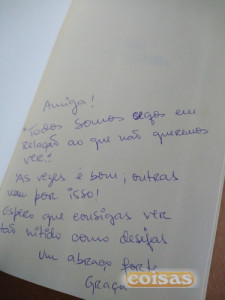 Amiga!
"Todos somos cegos em
relação ao que não queremos
ver".
Às vezes é bom, outras
nem por isso!
Espero que consigas ver
tão nítido como desejas
Um abraço forte
Graça
coisas